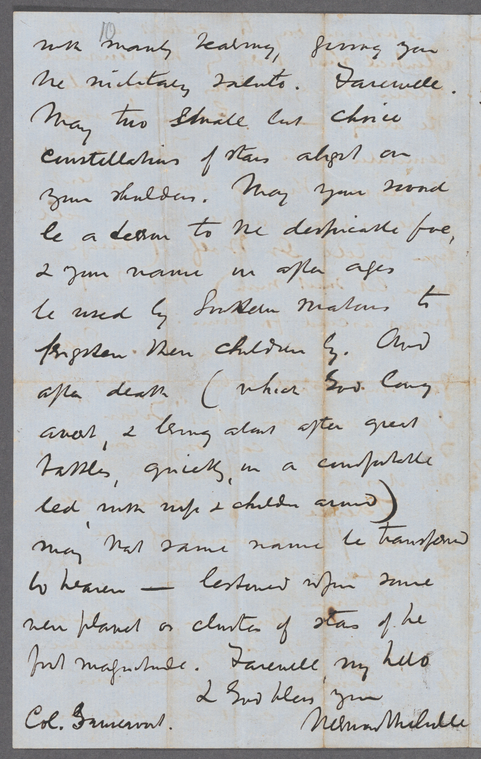 10
with manly bearing, giving you
the military salute. Farewell.
May two small but choice
constellations of stars alight on
your shoulders. May your sword
be a terror to the despicable foe,
& your name in after ages
be used by Southern matrons to
frighten their children by. And
after death (which God long
avert, & bring about after great
battles, quietly, in a comfortable
bed, with wife & children around)
may that same name be transferred
to heaven — bestowed upon some
new planet or cluster of stars of the
first magnitude. Farewell, my hero
& God bless you
Herman Melville
Col. Gansevoort.